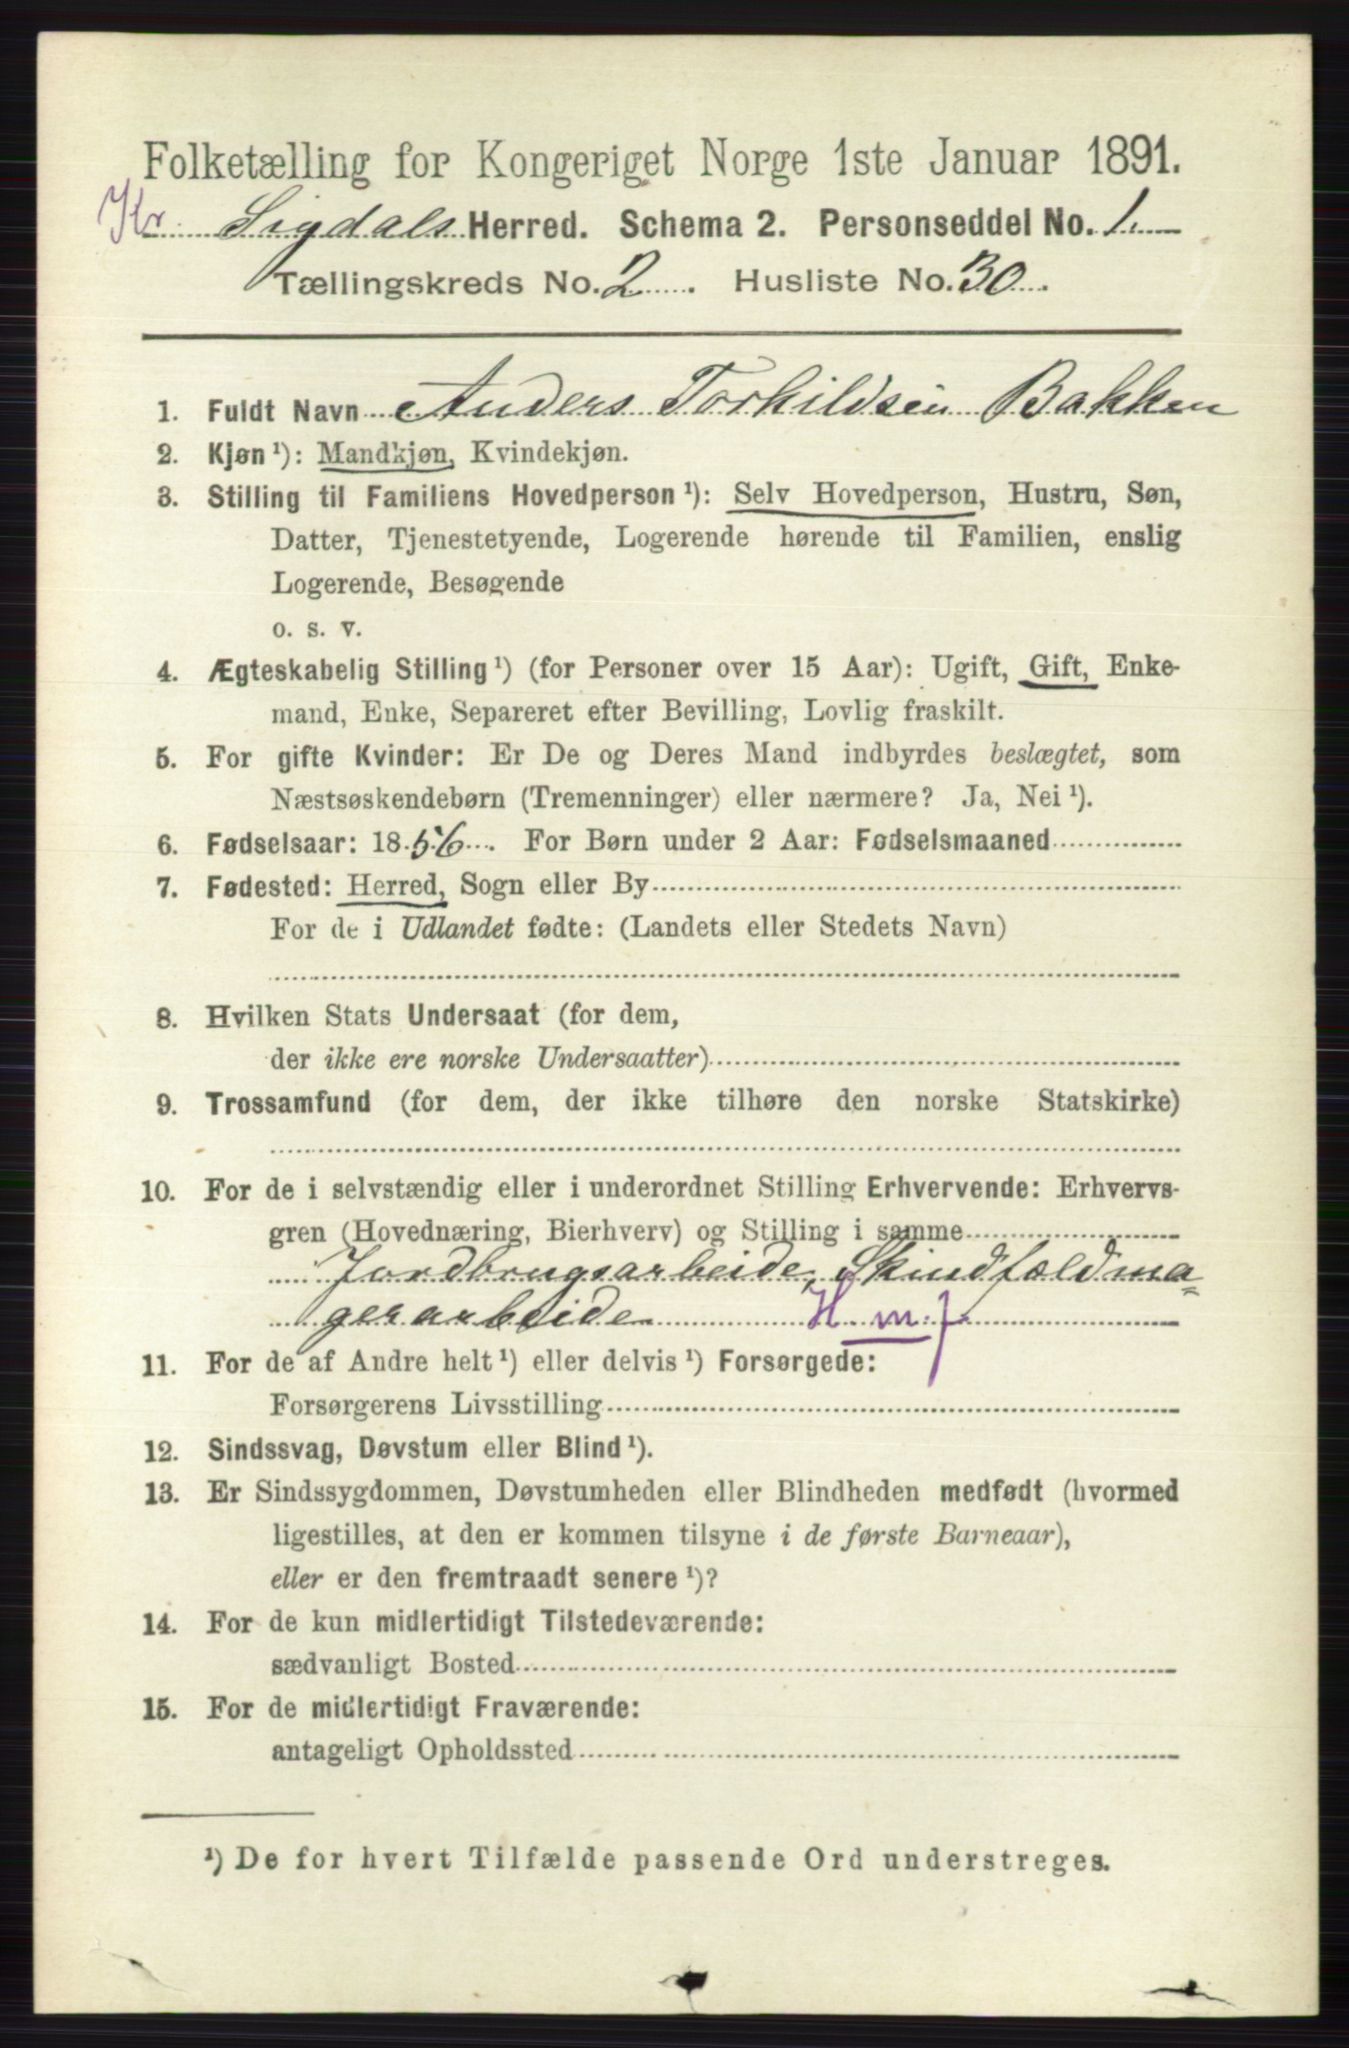 Folketælling for Kongeriget Norge 1ste Januar 1891.
Kr Sigdals Herred. Schema 2. Personseddel No. 1.
Tællingskreds No. 2. Husliste No. 30.
1. Fuldt Navn Anders Torkildsen Bakken
2. Kjøn ¹): Mandkjøn, Kvindekjøn.
3. Stilling til Familiens Hovedperson ¹): Selv Hovedperson, Hustru, Søn,
Datter, Tjenestetyende, Logerende hørende til Familien, enslig
Logerende, Besøgende
o. s. v.
4. Ægteskabelig Stilling ¹) (for Personer over 15 Aar): Ugift, Gift, Enke-
mand, Enke, Separeret efter Bevilling, Lovlig fraskilt.
5. For gifte Kvinder: Er De og Deres Mand indbyrdes beslægtet, som
Næstsøskendebørn (Tremenninger) eller nærmere? Ja, Nei ¹).
6. Fødselsaar: 1856. For Børn under 2 Aar: Fødselsmaaned
7. Fødested: Herred, Sogn eller By
For de i Udlandet fødte: (Landets eller Stedets Navn)
8. Hvilken Stats Undersaat (for dem,
der ikke ere norske Undersaatter)
9. Trossamfund (for dem, der ikke tilhøre den norske Statskirke)
10. For de i selvstændig eller i underordnet Stilling Erhvervende: Erhvervs-
gren (Hovednæring, Bierhverv) og Stilling i samme
Jordbrugsarbeide, Skindfældma=
gerarbeide H m. f.
11. For de af Andre helt ¹) eller delvis ¹) Forsørgede:
Forsørgerens Livsstilling
12. Sindssvag, Døvstum eller Blind ¹).
13. Er Sindssygdommen, Døvstumheden eller Blindheden medfødt (hvormed
ligestilles, at den er kommen tilsyne i de første Barneaar),
eller er den fremtraadt senere ¹)?
14. For de kun midlertidigt Tilstedeværende:
sædvanligt Bosted
15. For de midlertidigt Fraværende:
antageligt Opholdssted
¹) De for hvert Tilfælde passende Ord understreges.